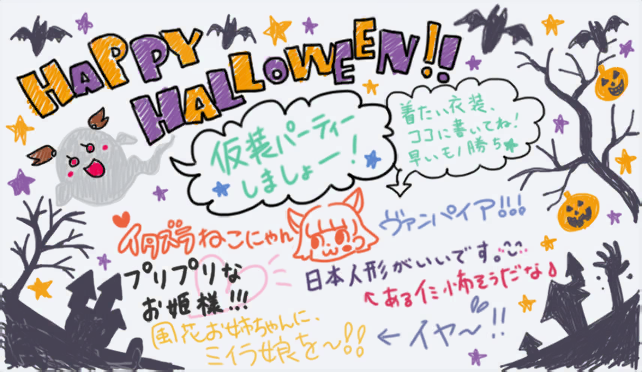 HAPPY
HALLOWEEN!!
仮装パーティー
しましょー!
着たい衣装、
ココに書いてね!
早いもの勝ち
イタズラねこにゃん
ヴァンパイア!!!
プリプリな
お姫様!!!
日本人形がいいです。
↑あるイミ怖そうだな♪
風花お姉ちゃんに、
ミイラ娘を〜!!
←イヤ〜!!